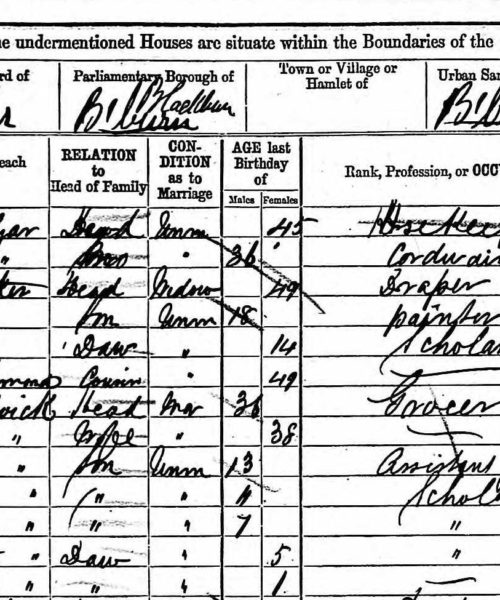 e undermentioned Houses are situate within the Boundaries of the
rd of Parliamentary Borough of Town or Village or Hamlet of Urban San
r B'burn Blackburn B'b
each RELATION to Head of Family CONDITION as to Marriage AGE last Birthday of Rank, Profession, or OCCU
Males Females
Head Unm 45
" Bro " 36 Cordwain
Head Widow 49 Draper
Son Unm 18 painter
Daur " 14 Scholar
mma Cousin " 49
wick Head Mar 36 Grocer
" Wife " 38
" Son Unm 13 Assistant
" " " 11 Schol
" " " 7 "
" Daur " 5 "
" " " 1